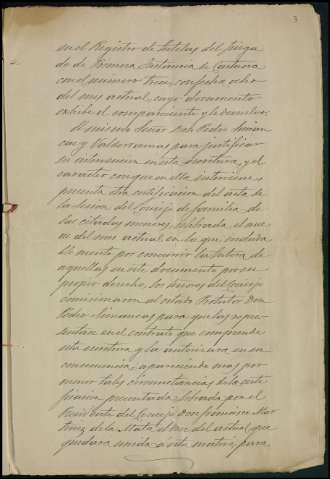 3
en el Registro de Tutelas del Juzga
do de Primera Instancia de
con el número trece, con fecha ocho
del mes actual, cuyo documento
exhibe el compareciente y le devuelvo.
El mismo Señor Don Pedro Siman
cas y Valderramas para justificar
su intervencion en esta escritura, y el
caracter con que en ella interviene,
presenta otra certificacion del acta de
la sesion del Consejo de familia de
las citadas menores, celebrada el nueve
del mes actual, en la que, mediante
por concurrir la tutora de
aquellas en este documento por su
propio derecho, los Señores del Consejo
comisionaron al citado Protutor Don
Pedro Simancas para que las repre
sentara en el contrato que comprende
esta escritura y la autorizara en su
consecuencia; apareciendo mas por
menor tales circunstancias de la certi
ficacion presentada, librada por el
Presidente del Consejo Don Francisco Mar
tinez de la Mata el del actual que
quedara unida á esta matriz, para